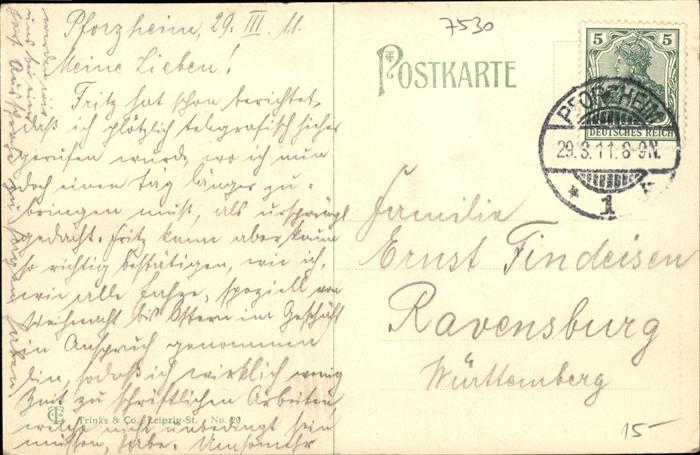 Pforzheim, 29. III. 11.
Meine Lieben!
Fritz hat schon berichtet,
daß ich plötzlich telegrafisch hieher
gerufen wurde, wo ich nun
doch einen Tag länger zu-
bringen muß, als ursprüngl.
gedacht. Fritz kann aber kaum
so richtig bestätigen, wie ich,
wie alle Jahre, speziell von
Weihnacht bis Ostern im Geschäft
in Anspruch genommen
bin, sodaß ich wirklich wenig
Zeit zu schriftlichen Arbeiten,
welche nicht unbedingt sein
müssen, habe. Umsomehr
7530
POSTKARTE
5 5
DEUTSCHES REICH
PFORZHEIM
29.3.11.8-9N.
* 1
Familie
Ernst Findeisen
Ravensburg
Württemberg
15-
Trinks & Co., Leipzig-St. No. 20